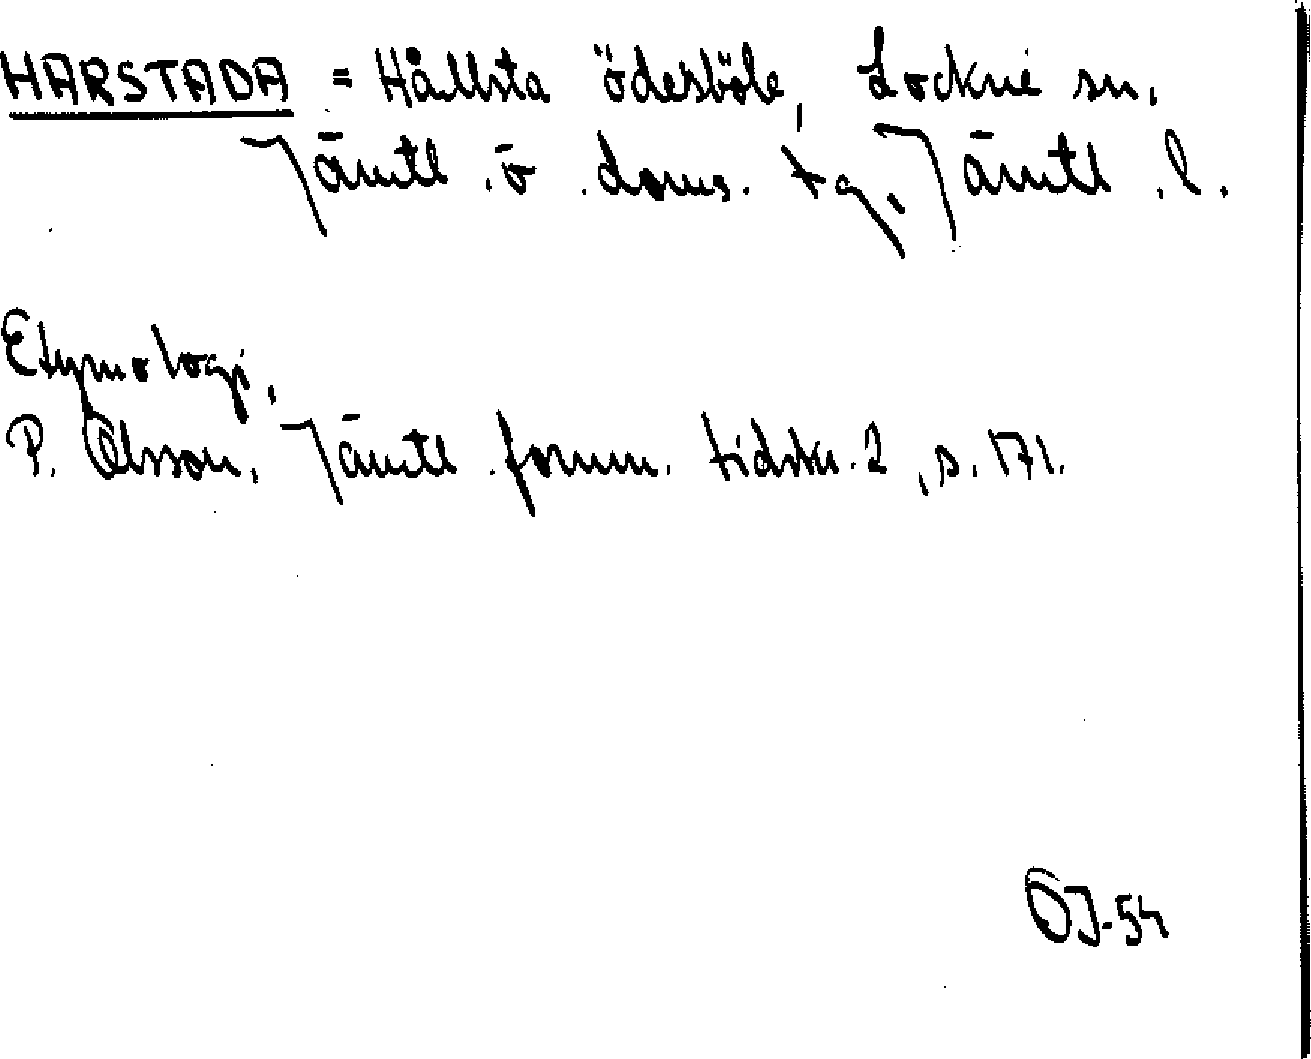 HARSTADA = Hållsta ödesböle, Lockne sn.
Jämtl. ö. doms. tg, Jämtl. l.
Etymologi.
P. Olsson, Jämtl. fornm. tidskr. 2, s. 171.
OJ-54